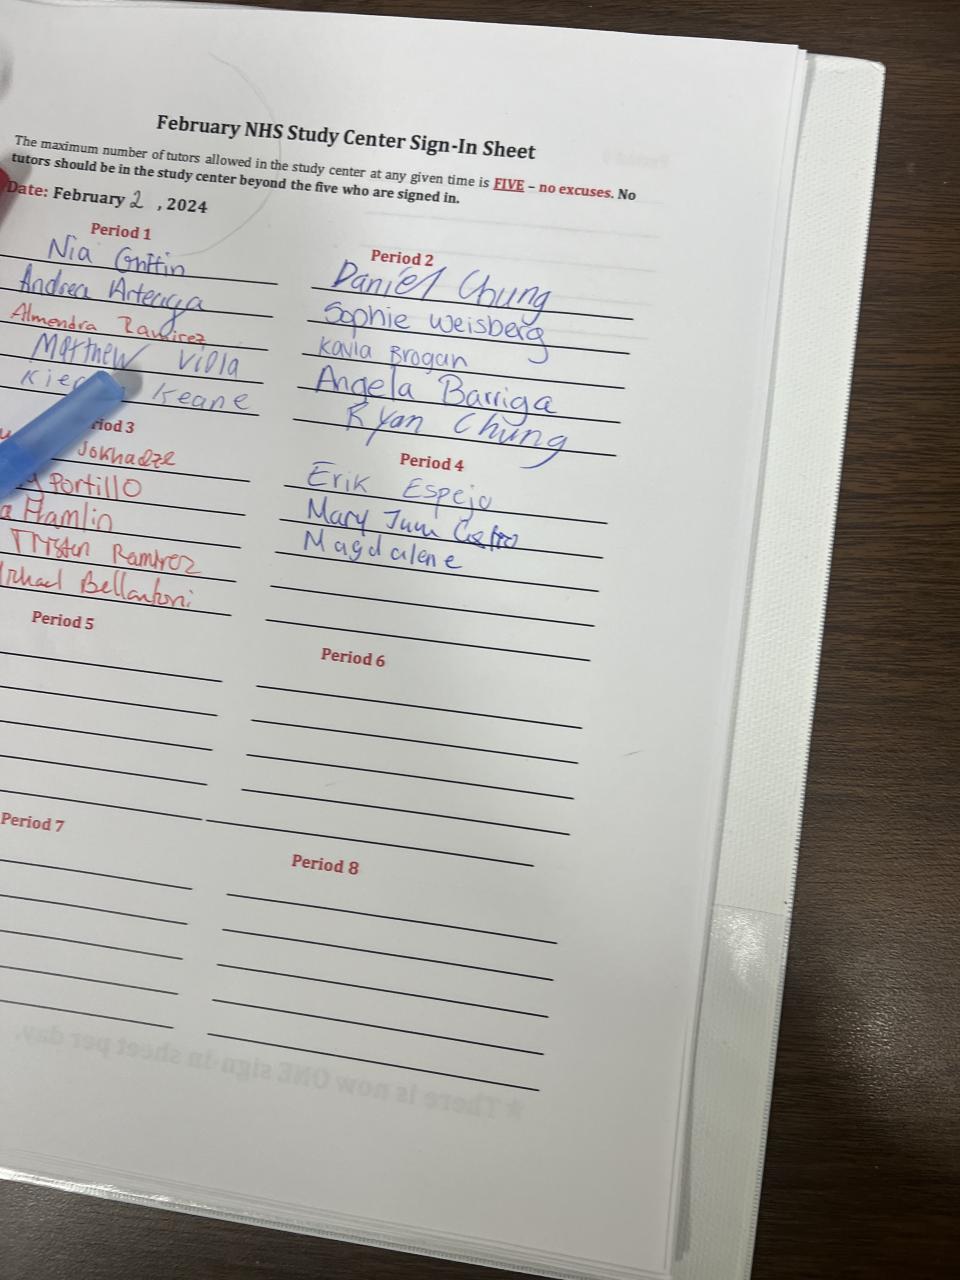 February NHS Study Center Sign-In Sheet
The maximum number of tutors allowed in the study center at any given time is FIVE – no excuses. No
tutors should be in the study center beyond the five who are signed in.
Date: February 2 , 2024
Period 1
Nia Griffin
Andrea Arteaga
Almendra Ramirez
Matthew Viola
Keane
Period 2
Daniel Chung
Sophie Weisberg
Kayla Brogan
Angela Barriga
Ryan Chung
3
Jokhadze
Portillo
Hamlin
Tristan Ramirez
Michael Bellantoni
Period 4
Erik Espejo
Mary Castro
Magdalene
Period 5
Period 6
Period 7
Period 8
*There is now ONE sign-in sheet per day.